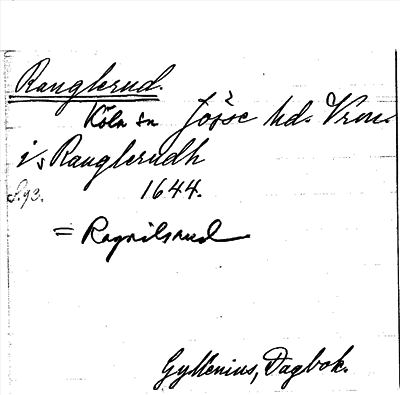 Ranglerud.
Köla sn Jösse hd. Vrml.
i, Ranglerudh
S.93. 1644.
= Ragnilsrud
Gyllenius, Dagbok.